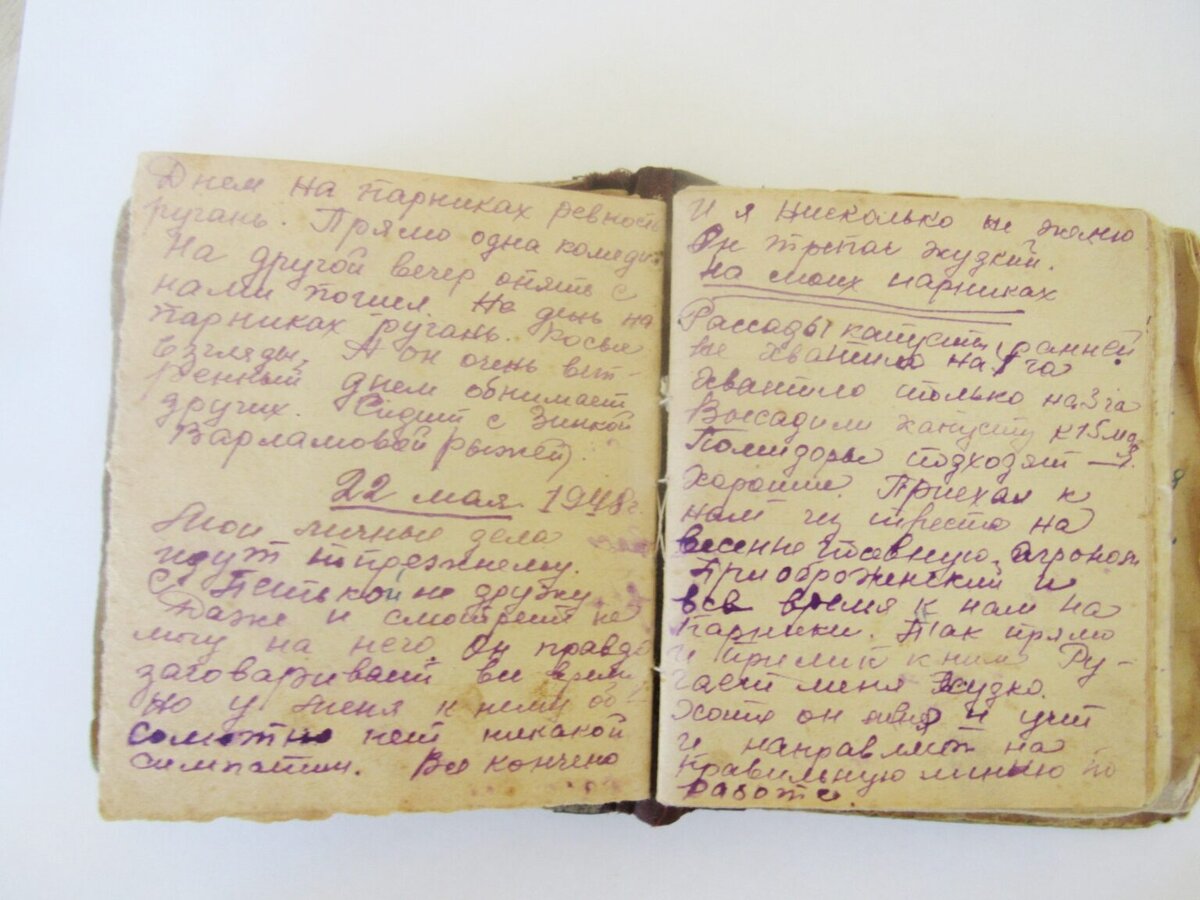 Днем на парниках ревность
ругань. Прямо одна комедия
На другой вечер опять с
нами пошел. На день на
парниках ругань. Косые
взгляды. А он очень вет-
ренный днем обнимает
других. Сидит с Зинкой
Варламовой рыжей).
22 мая 1948г.
Мои личные дела
идут попрежнему.
С Петькой не дружу.
Даже и смотреть не
могу на него. Он правда
заговаривает все время
но у меня к нему аб-
солютно нет никакой
симпатии. Все кончено
И я нисколько не жалею
Он трепач жудкий.
на моих парниках
Рассады капусты ранней
не хватило на га
хватило только на 3 га
Высадили капусту к 15 мая
Помидоры подходят —
хорошие. Приехал к
нам из треста на
весенне агроном
Приображенский и
всё время к нам на
парники. Так прямо
и прилип к ним Ру-
гает меня жудко.
Хотя он меня и учит
и направляет на
правильную линию по
работе.